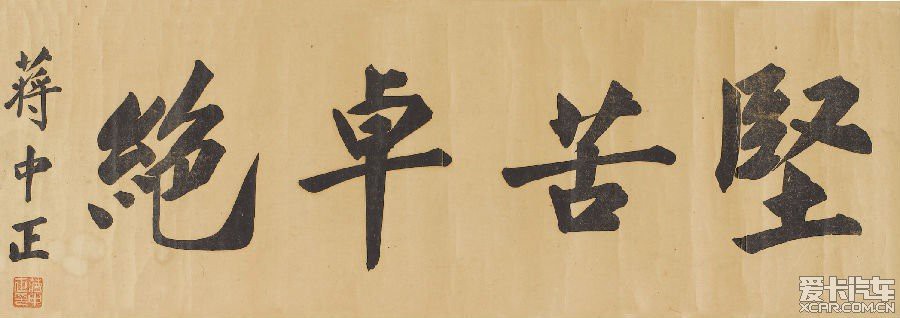 堅苦卓絶
蔣中正
爱卡汽车
XCAR.COM.CN